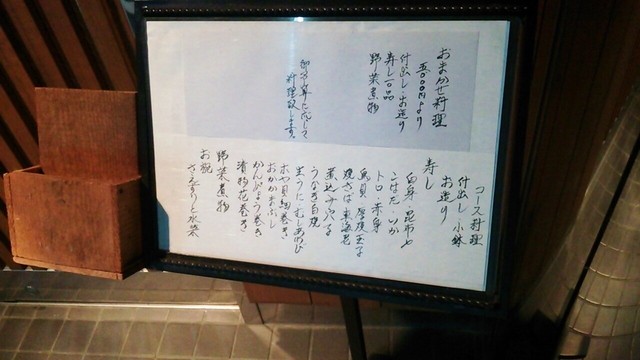 おまかせ料理
五〇〇〇円より
仕出し・お造り
寿し一〇品
野菜煮物
御予算に応じて
料理致します。
コース料理
仕出し 小鉢
お造り
寿し
白身・昆布〆
こはだ・いか
トロ・赤身
鳥貝 厚焼玉子
焼さば
煮込み穴子
うなぎ白焼
生うに むしあわび
ホヤ貝 細巻き
おかかまぶし
かんぴょう巻き
漬物 花巻き
野菜煮物
お椀